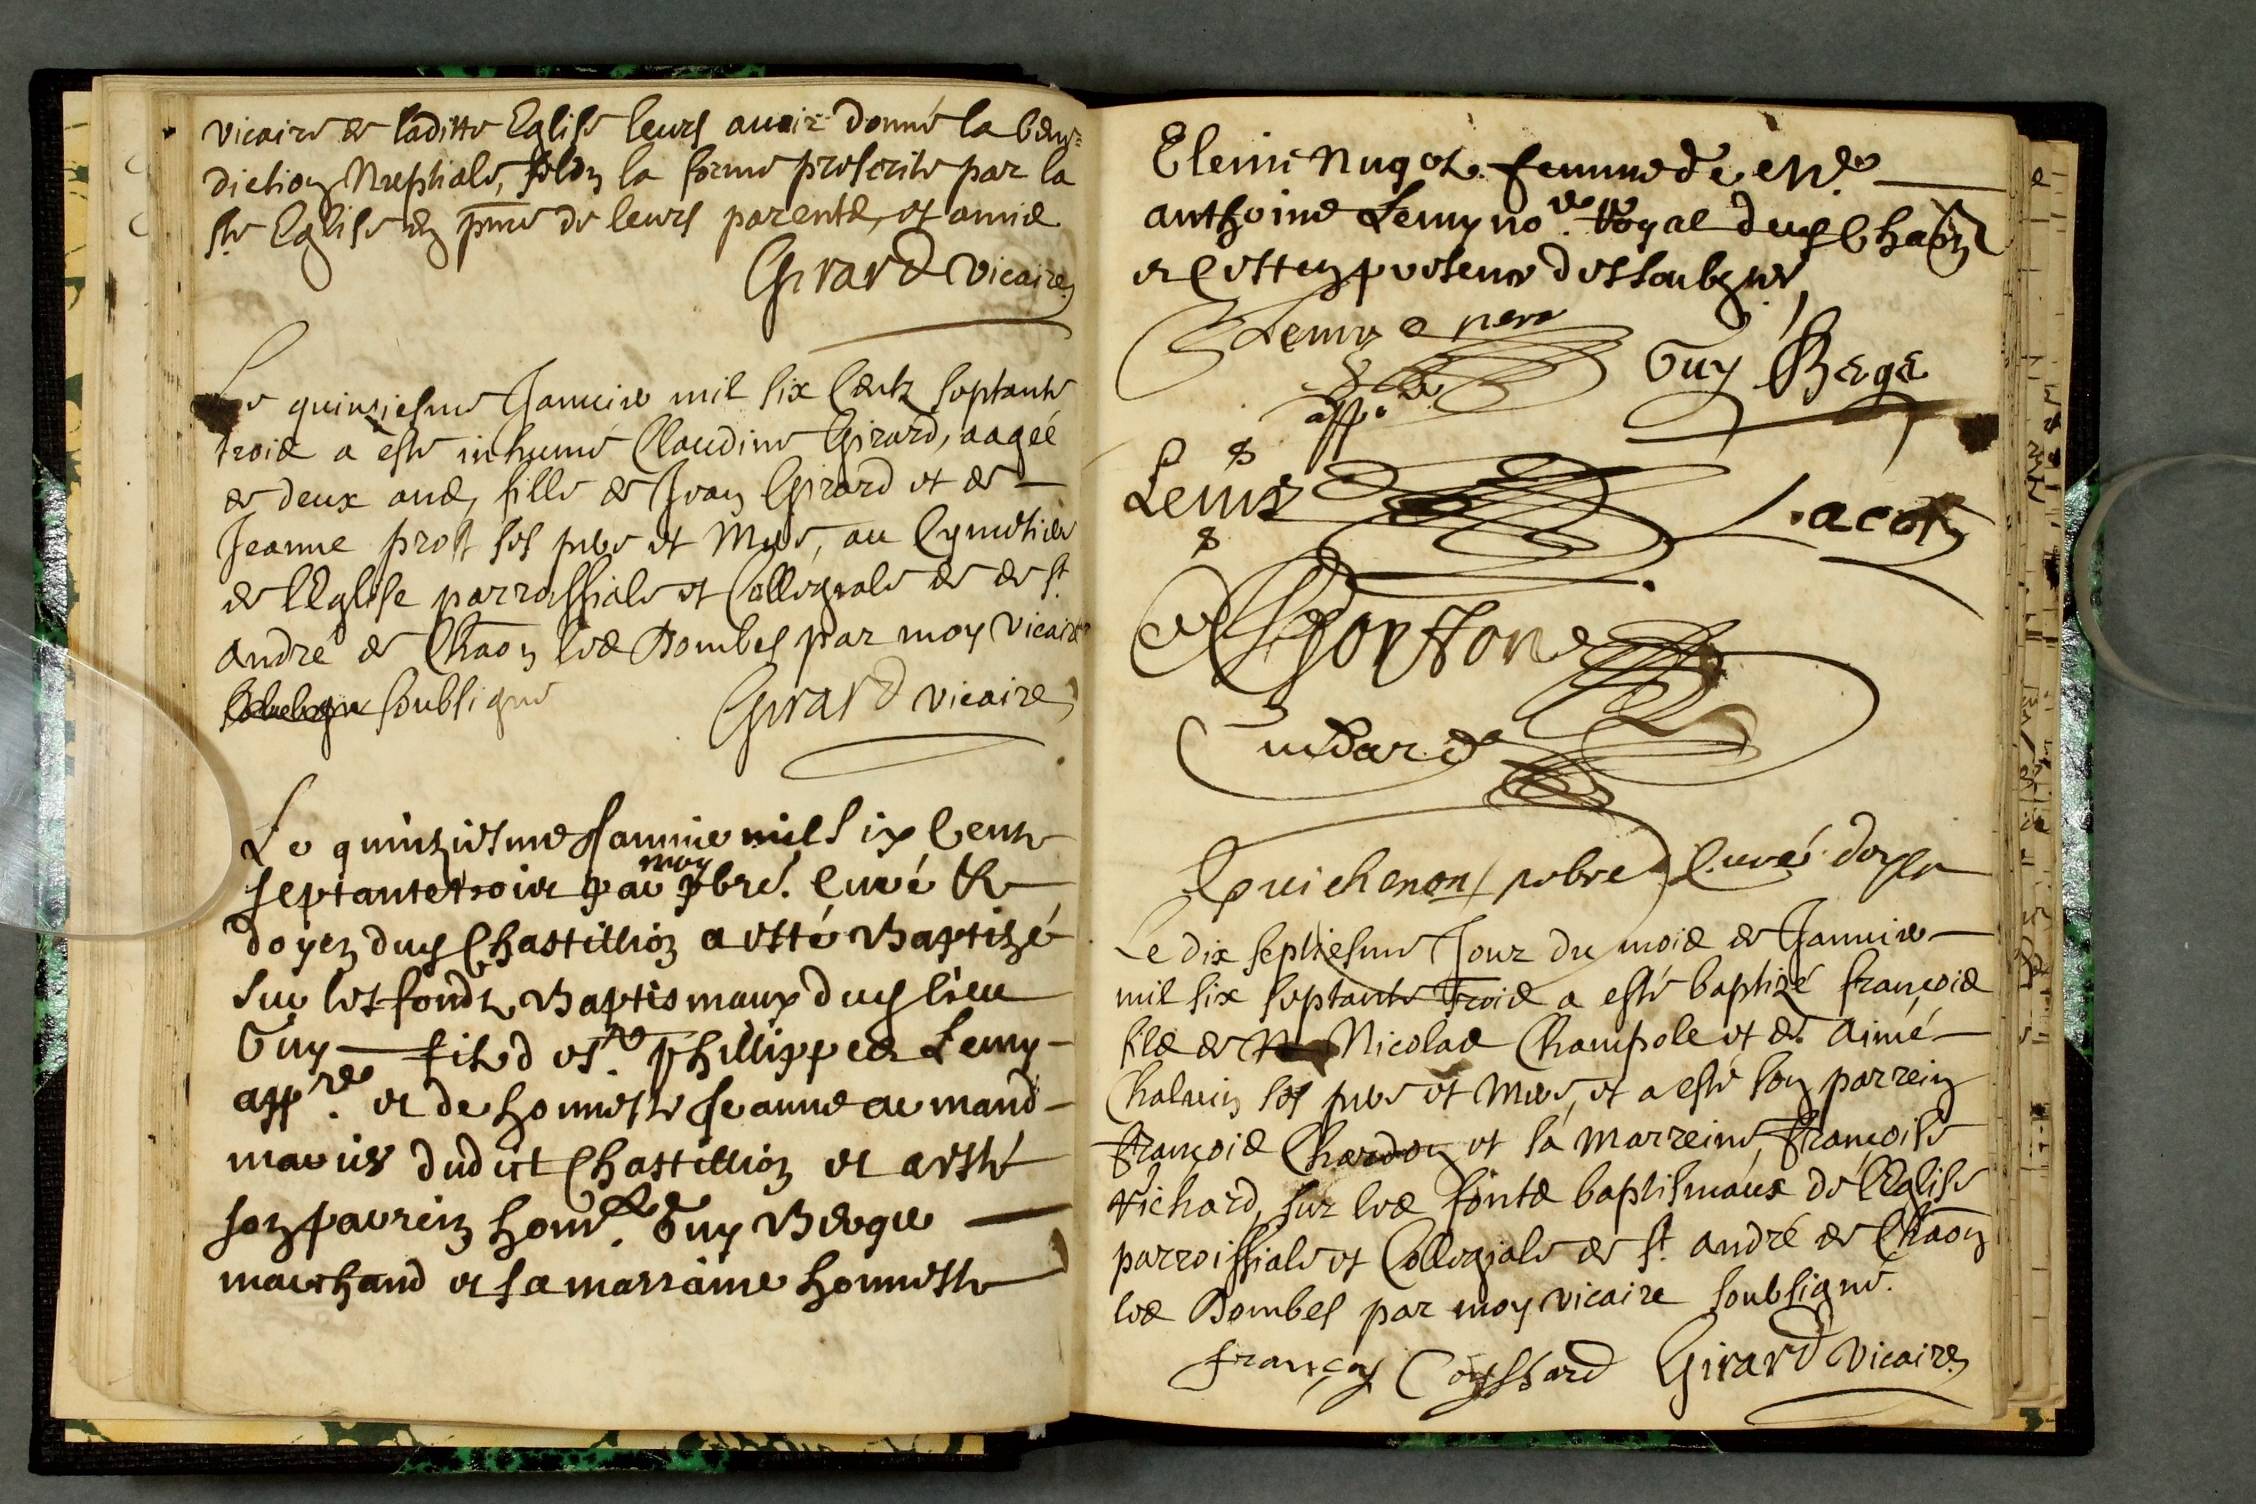 vicaire de laditte Eglise leurs avoir donné la bene=
diction Nuptiale, selon la forme prescrite par la
ste Eglise en pnce de leurs parents, et amis
Girard vicaire
Le quinziesme Janvier mil six Cents septante
trois a esté inhumé Claudine Girard, aagéé
de deux ans, fille de Jean Girard et de
Jeanne prost ses pere et Mere, au Cymetiere
de l'Eglise parroissiale et Collegiale de de st
André de Chaon les Dombes par moy vicaire
soubsigné Girard vicaire
Le quinziesme Janvier mil six Cents
septantetrois par moy pbre. Curé &
doyen duy Chastillion a esté Baptizé
sur les fonds Baptismaux duy lieu
Guy fils d es. re phillippes Lemy
app.re et de honneste Jeanne armand
mariés dudict Chastillion et a esté
son parrein hon.ble Guy Berge
marchand et sa marraine honneste
Eleine Nugoz femme de Me
anthoine Lemy no.re Royal duy Chaon
et Cest en presence des soubznés
Lemy pere
app.re
Guy Berge
Lemy
Lacoste
Cuidard
Guichenon pebre Curé doyen
Le dix septiesme Jour du mois de Janvier
mil six septante Trois a esté baptizé françois
fils de Nicolas Champole et de Aimé
Chalvin ses pere et Mere, et a esté son parrein
françois Chardon et sa Marreine, françoise
richard, sur les fonts baptismaux de l'Eglise
parroissiale et Collegiale de st. André de Chaon
les Dombes par moy vicaire soubsigné.
françoy Coyssard Girard vicaire